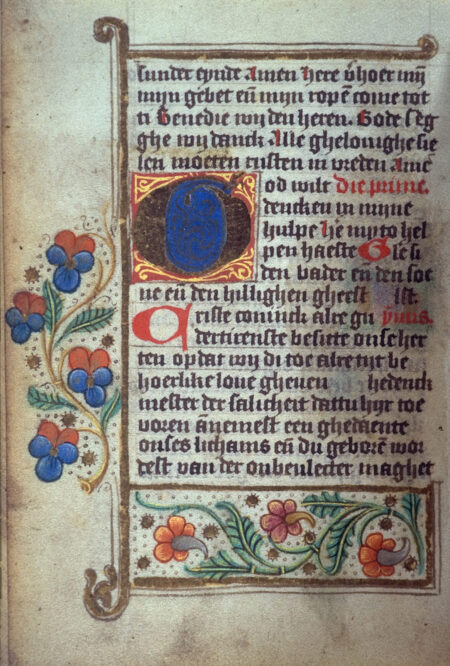 sunder eynde Amen Here v̄hoer mij
mijn gebet en̄ mijn ropē come tot
ti Benedie wij den heren. Gode seg
ghe wij danck Alle ghelouighe sie
len moeten rusten in vreden Amē
God wilt die prime.
dencken in mijne
hulpe he my to hel
pen haeste Gle si
den vader en̄ den soe
ne en̄ den hillighen gheest
Criste coninck alre gu ymns.
dertirenste besitte onse her
ten opdat wij di toe alre tijt be
hoerlike loue gheuen hedenck
mester der salicheit dattu hijr toe
voren ānemest een ghedaente
onses lichams en̄ du geborē wor
dest van der onbeulecter maghet